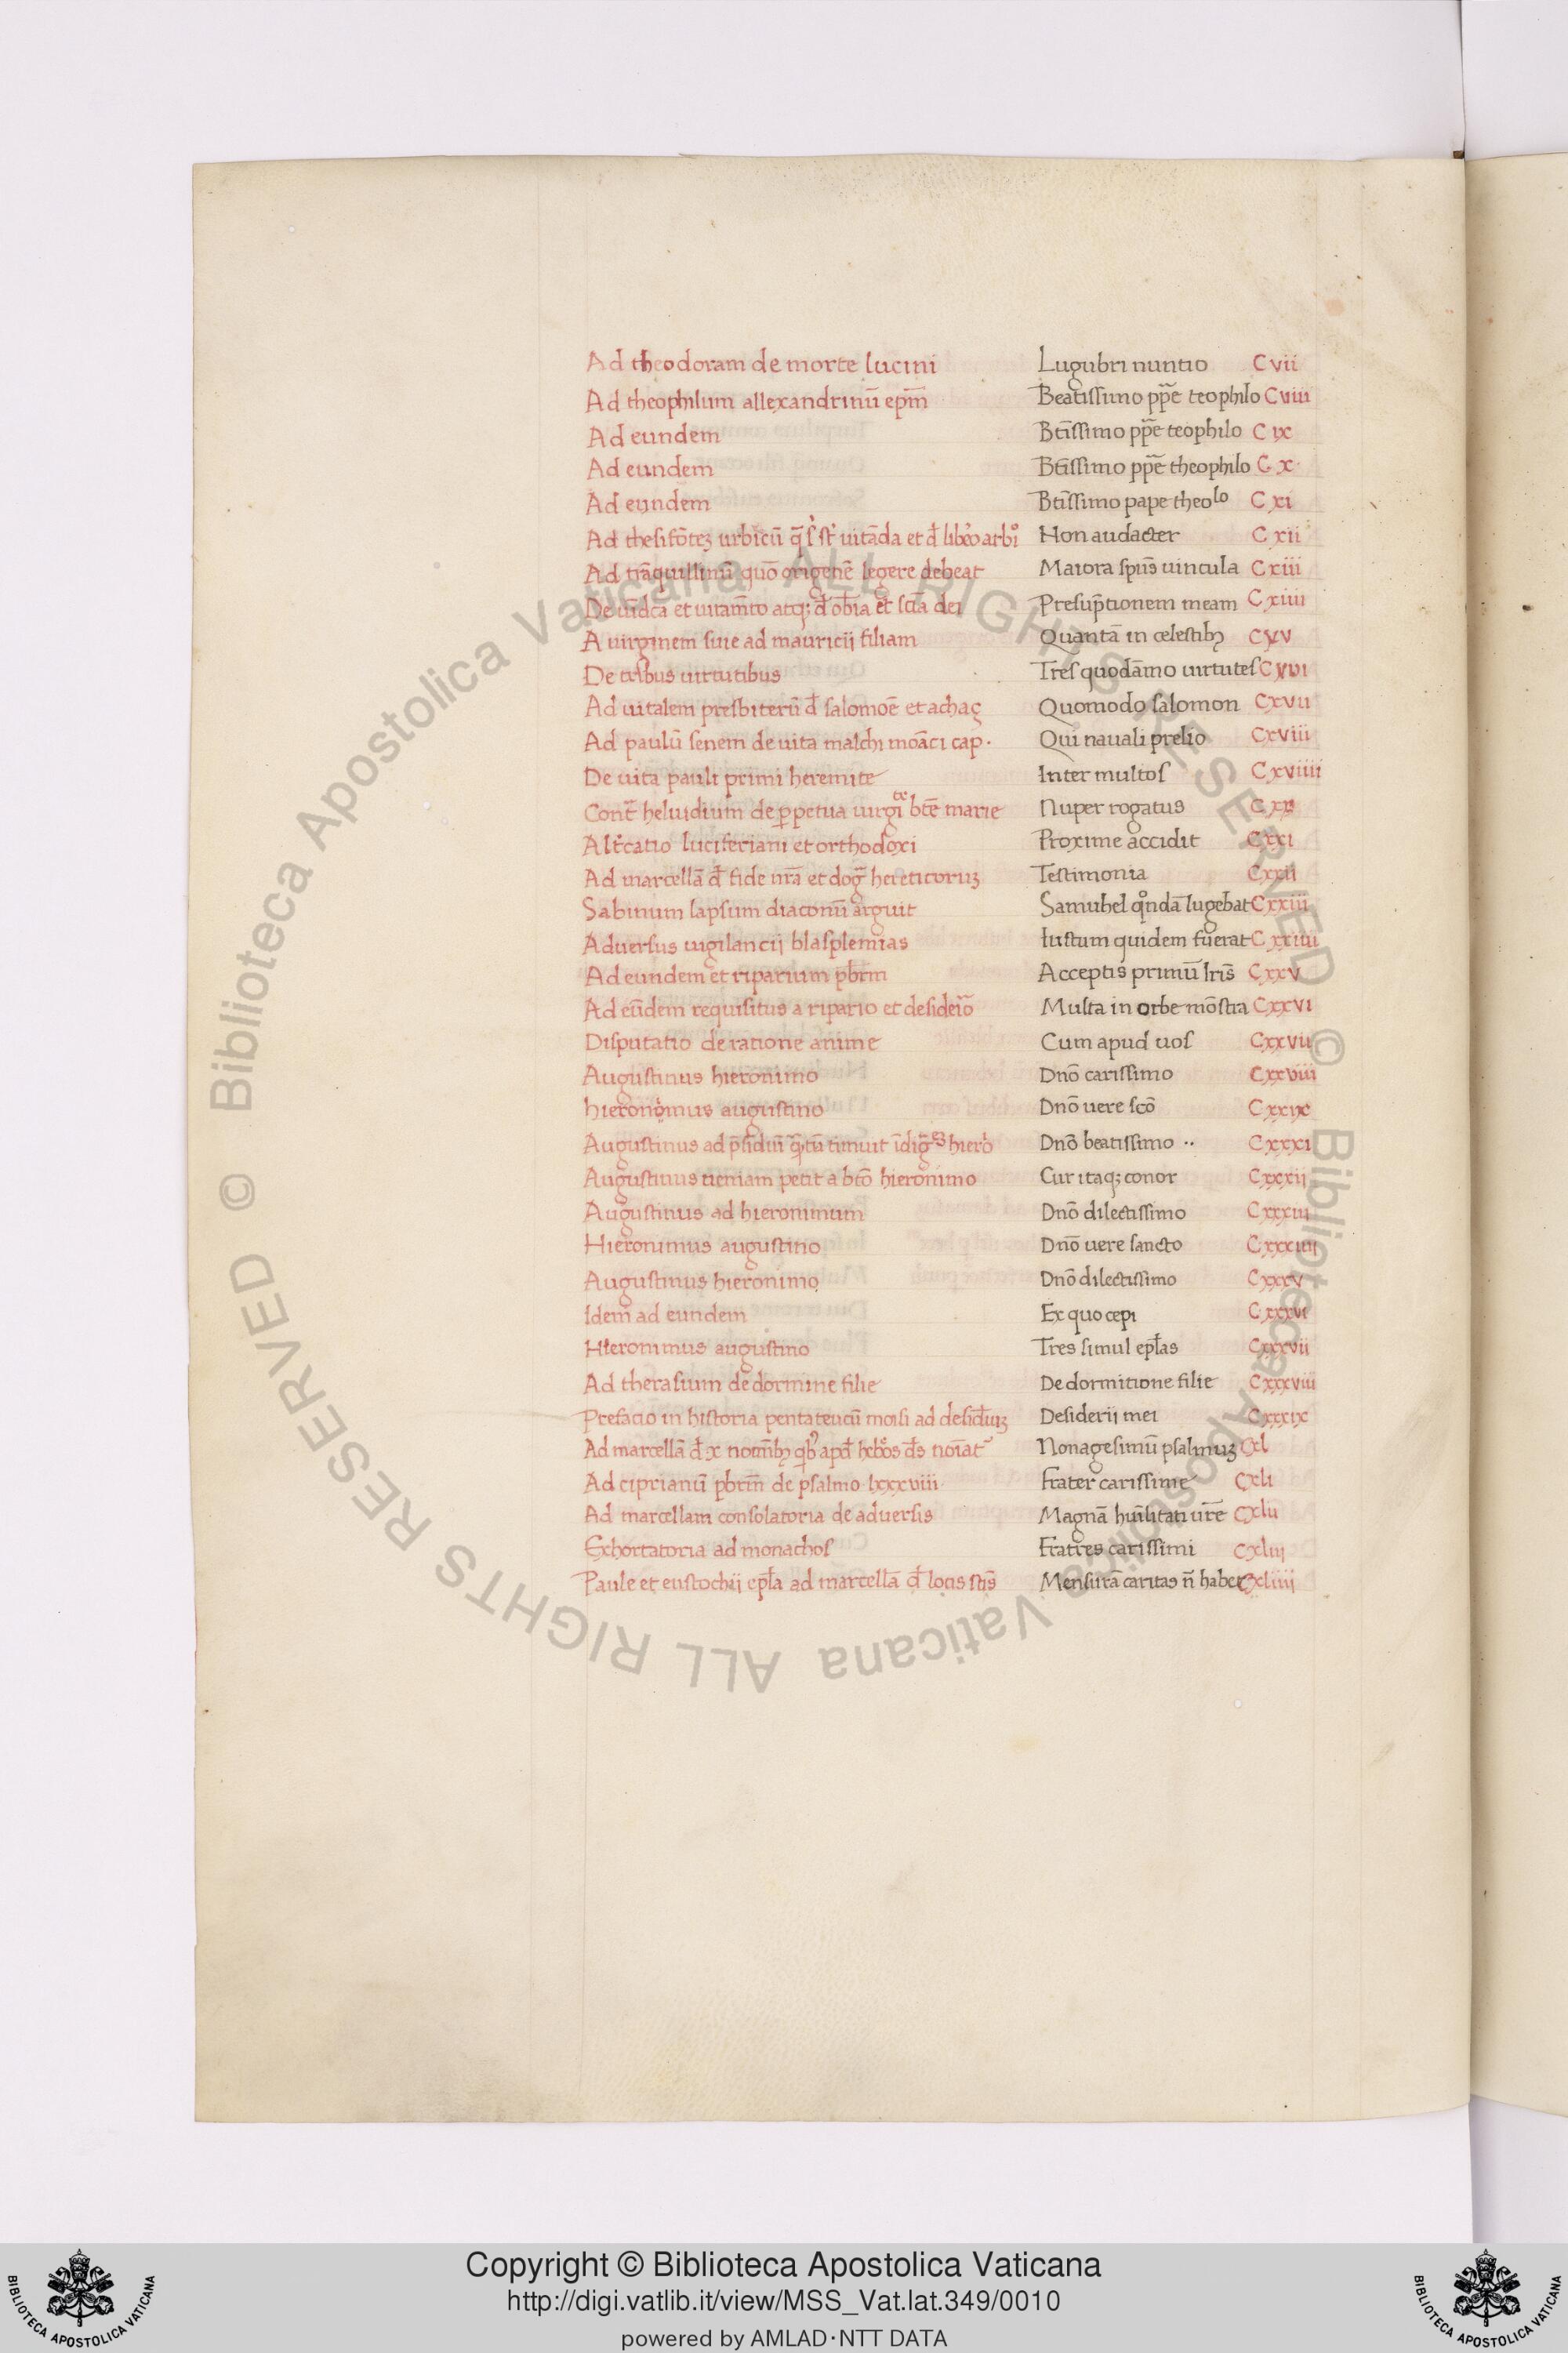 Ad theodoram de morte lucini Lugubri nuntio Cvii
Ad theophilum allexandrinū ep̄m Beatissimo pp̄e teophilo Cviii
Ad eundem Bt̄issimo pp̄e teophilo C ix
Ad eundem Bt̄issimo pp̄e theophilo C x
Ad eundem Bt̄issimo pape theolo C xi
Ad thesifōtez urbicū uitāda et Non audacter C xii
Ad trāquillinū quō origenē legere debeat Maiora sp̄us uincula C xiii
et Presūptionem meam C xiiii
A uirginem siue ad mauricij filiam Quantā in celestibȝ C xv
De tribus uirtutibus Tres quodāmo uirtutes C xvi
Ad uitalem presbiterū đ salomōe et achaç Quomodo salomon C xvii
Ad paulū senem de uita malchi moāci cap. Qui nauali prelio C xviii
De uita pauli primi heremite Inter multos C xviiii
Cont̄ heluidium de ꝑpetua uirgīte bt̄e marie Nuper rogatus C xx
Alt̄catio luciferiani et orthodoxi Proxime accidit C xxi
Ad marcellā đ fide nr̄a et doḡ hereticoruȝ Testimonia C xxii
Sabinum lapsum diaconū arguit Samuhel qōndā lugebat C xxiii
Aduersus uigilancij blasplemias Iustum quidem fuerat C xxiiii
Ad eundem et riparium pb̄rm Acceptis primū lr̄is C xxv
Ad eūdem requisitus a ripario et desideīo Multa in orbe mōstra C xxvi
Disputatio de ratione anime Cum apud uos C xxvii
Augustinus hieronimo Dnō carissimo C xxviii
hieronimus augustino Dnō uere scō C xxix
Augustinus ad timuit Dnō beatissimo .. C xxxi
Augustinus ueniam petit a btō hieronimo Cur itaqȝ conor C xxxii
Augustinus ad hieronimum Dnō dilectissimo C xxxiii
Hieronimus augustino Dnō uere sancto C xxxiiii
Augustinus hieronimo Dnō dilectissimo C xxxv
Idem ad eundem Ex quo cepi C xxxvi
Hieronimus augustino Tres simul epl̄as C xxxvii
Ad therasium de dormine filie De dormitione filie C xxxviii
Prefacio in historia pentateucū moisi ad Desiderij mei C xxxix
Ad marcellā đ x Nonagesimū psalmuȝ Cxl
Ad ciprianū pb̄rm de psalmo lxxxviiii Frater carissime Cxli
Ad marcellam consolatoria de aduersis Magnā hūilitati ur̄e Cxlii
Exhortatoria ad monachos Fratres carissimi Cxliii
Paule et eustochij epl̄a ad marcellā đ locis sc̄is Mensurā caritas n̄ habet Cxliiii
© Biblioteca Apostolica Vaticana ALL RIGHTS RESERVED © Biblioteca Apostolica Vaticana ALL RIGHTS RESERVED
Copyright © Biblioteca Apostolica Vaticana
http://digi.vatlib.it/view/MSS_Vat.lat.349/0010
powered by AMLAD·NTT DATA
BIBLIOTECA APOSTOLICA VATICANA
BIBLIOTECA APOSTOLICA VATICANA